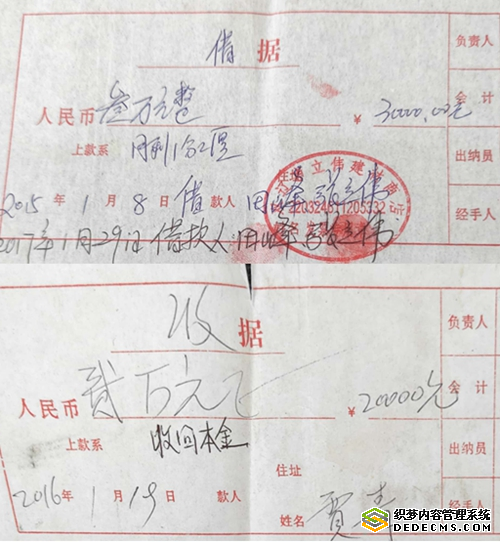 借据
负责人
人民币 叁万元整 ¥ 30000.00元
会计
上款系 月利1分2厘
出纳员
立伟建
2015年1月8 借款人 田峰
经手人
2017年1月29日 借款人 田峰 伟
收据
负责人
人民币 贰万元 ¥ 20000元
会计
上款系 收回本金
出纳员
住址
2016年1月19 款人
姓名 贾
经手人
织梦内容管理系统
DEDECMS.COM